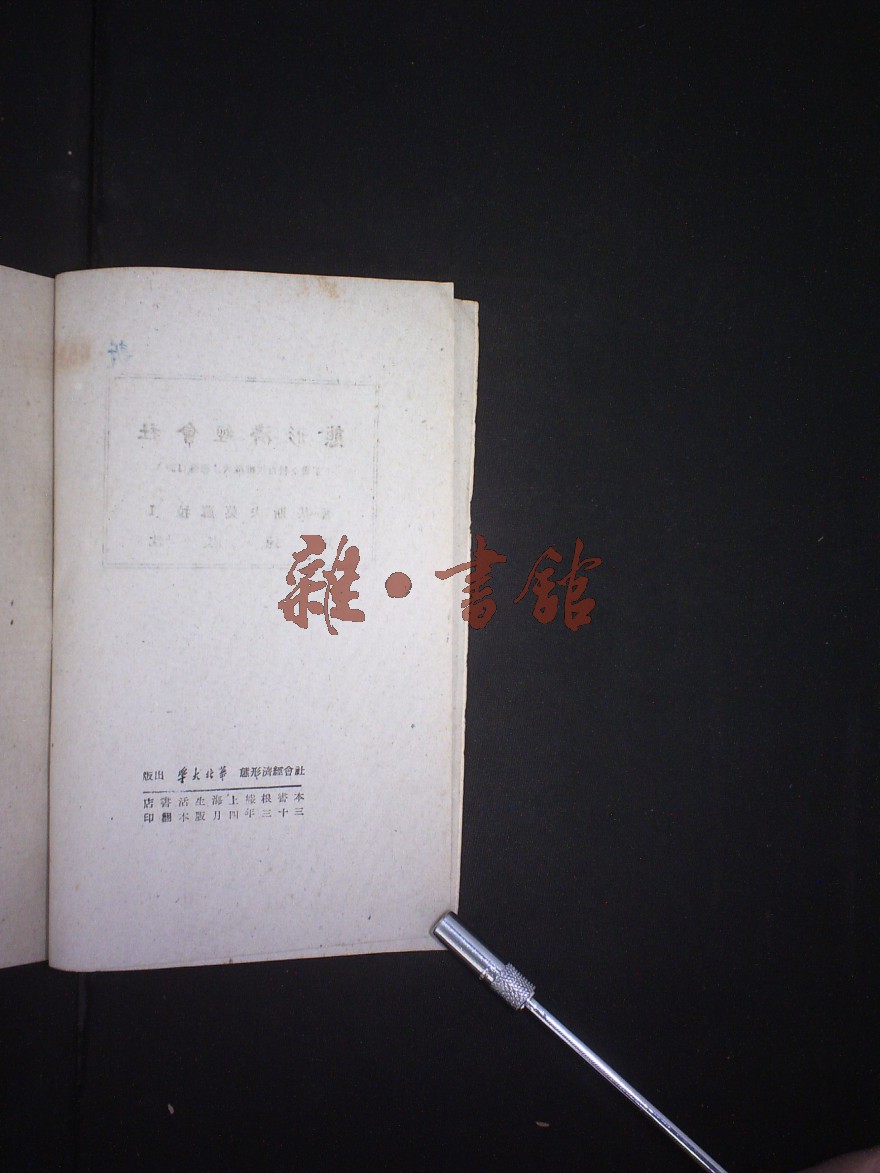 社會經濟形態
雜·書館
社會經濟形態 華北大學 出版
本書根據上海生活書店
三十三年四月版本翻印